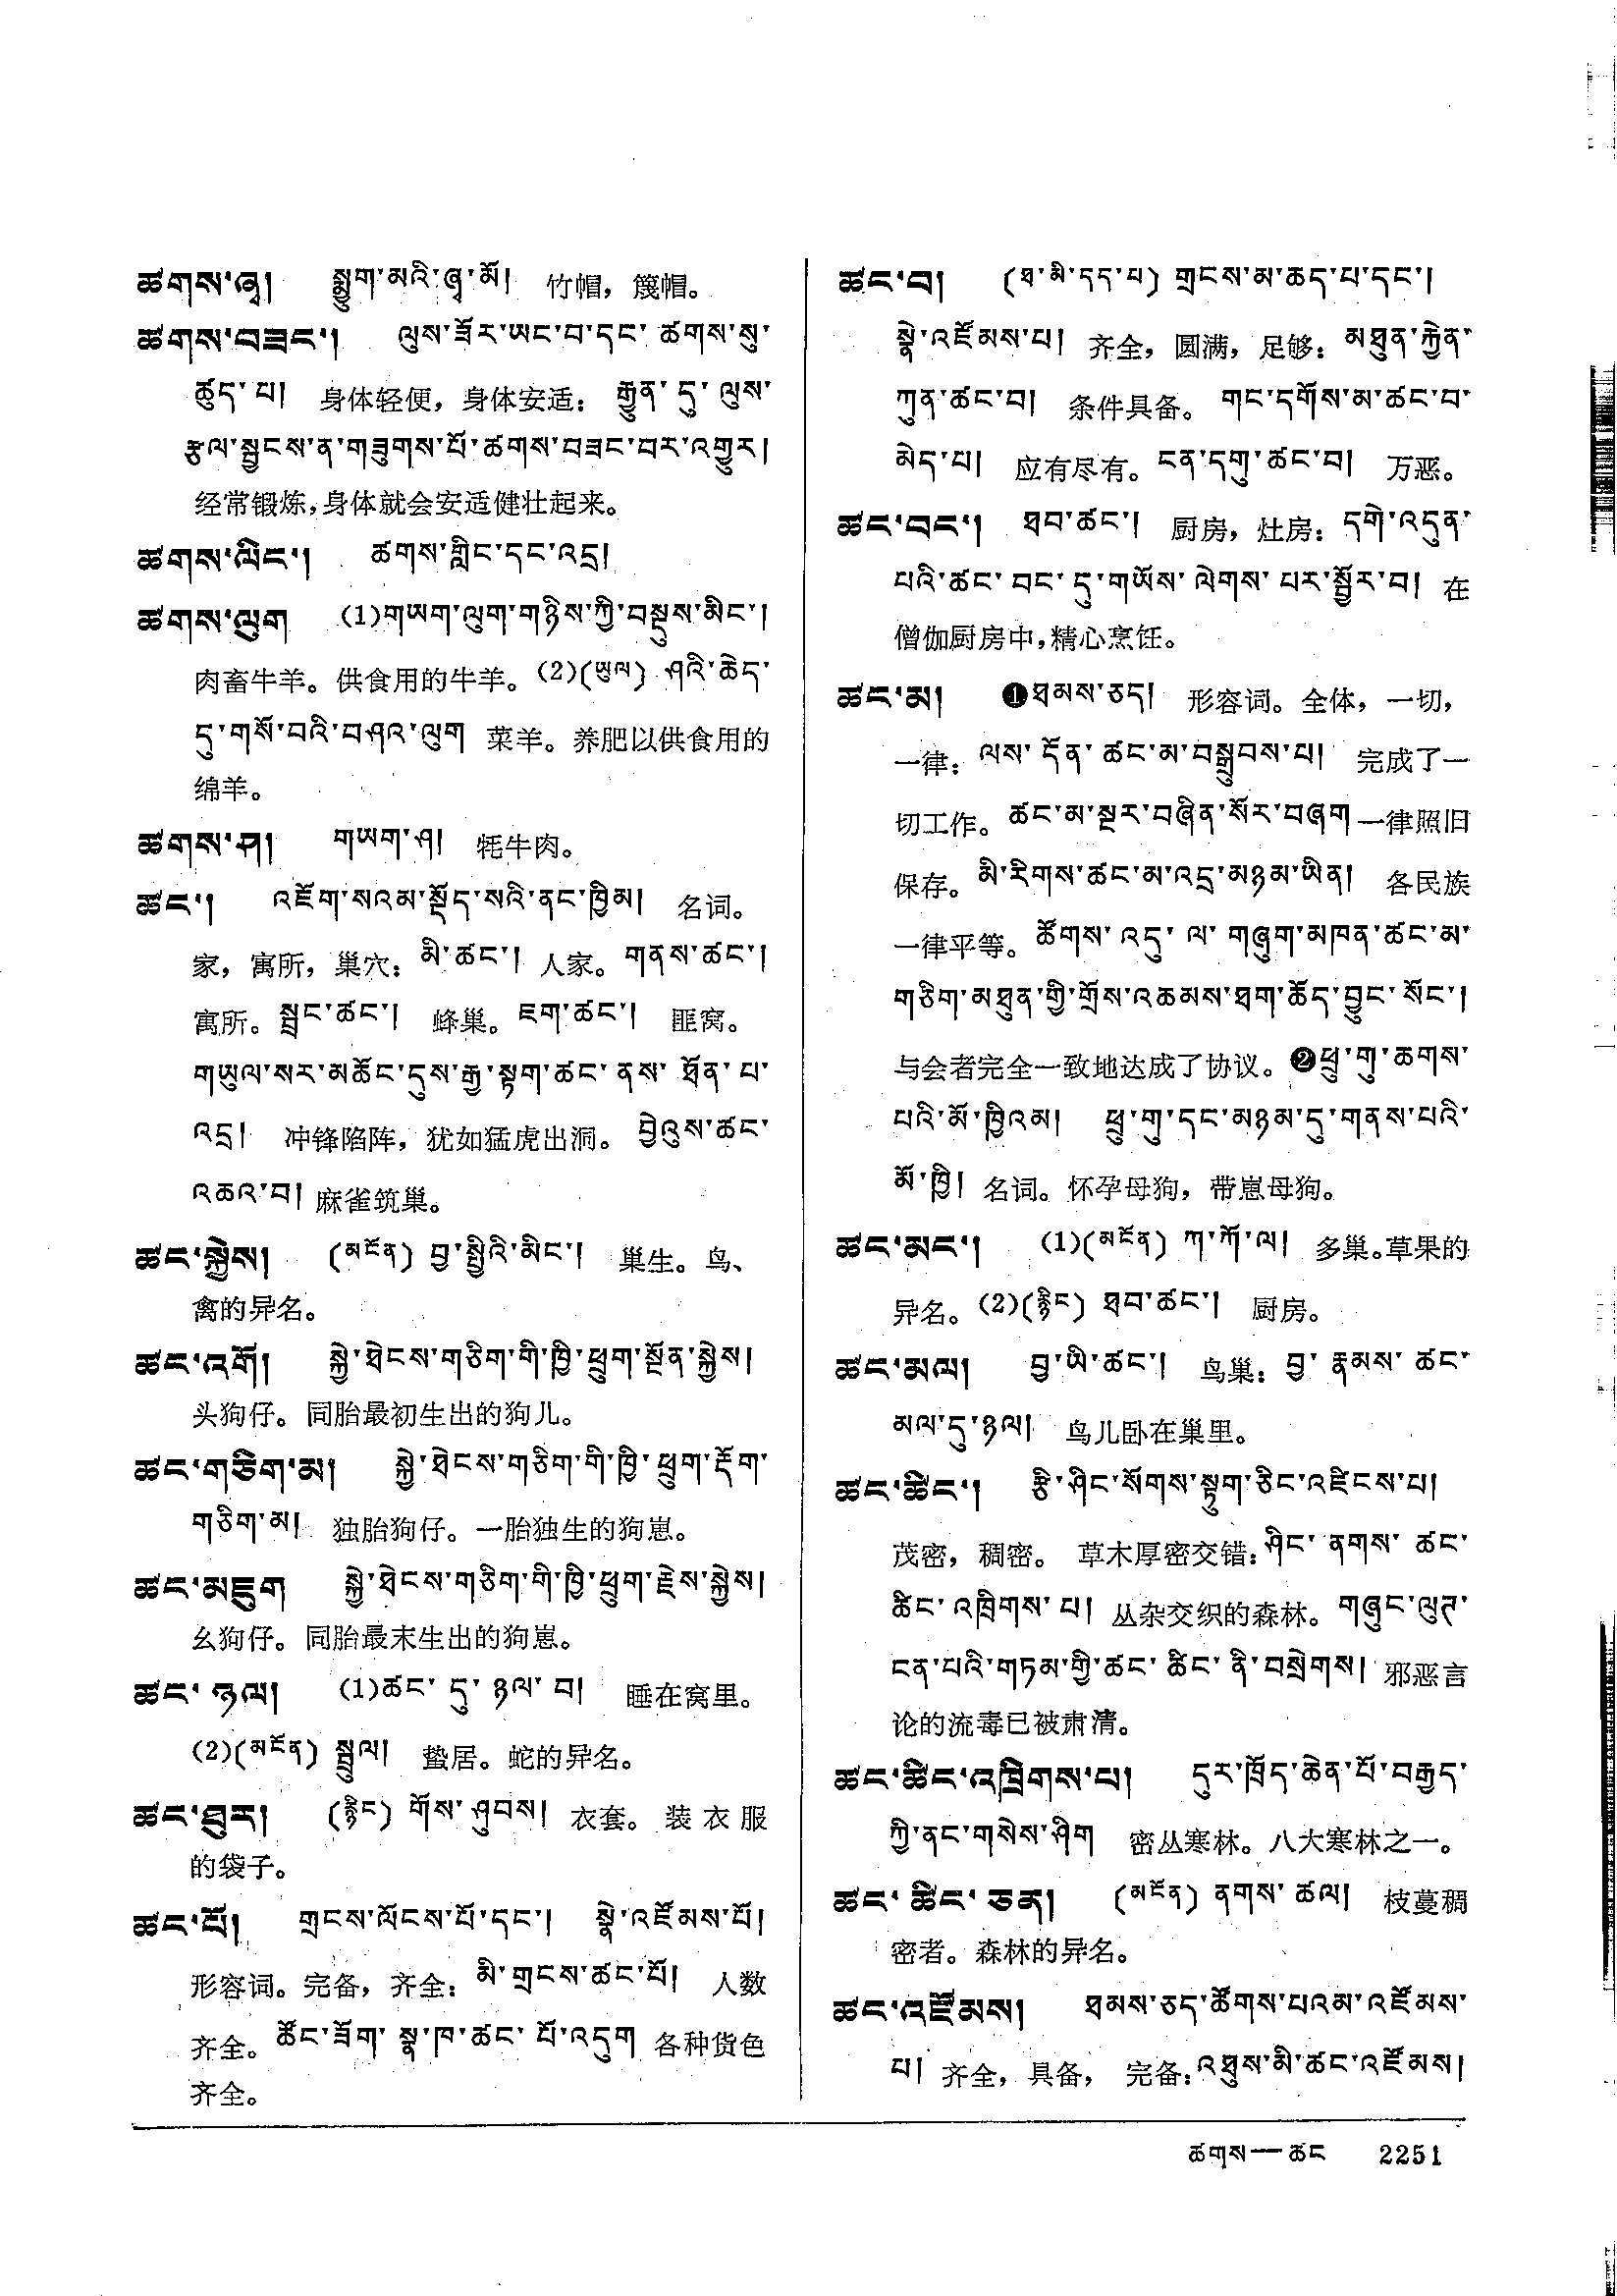 ཚགས་ཞྭ།   སྨྱུག་མའི་ཞྭ་མོ།  竹帽，篾帽。
ཚགས་བཟང་།   ལུས་ཟོར་ཡང་བ་དང་ ཚགས་སུ་
ཚུད་པ།  身体轻便，身体安适： རྒྱུན་དུ་ལུས་
རྩལ་སྦྱངས་ན་གཟུགས་པོ་ཚགས་བཟང་བར་འགྱུར།
经常锻炼,身体就会安适健壮起来。
ཚགས་ལིང་།   ཚགས་གླིང་དང་འདྲ།
ཚགས་ལུག   (1)གཡག་ལུག་གཉིས་ཀྱི་བསྡུས་མིང་།
肉畜牛羊。供食用的牛羊。(2)(ཡུལ) ཤའི་ཆེད་
དུ་གསོ་བའི་བཤའ་ལུག 菜羊。养肥以供食用的
绵羊。
ཚགས་ཤ།   གཡག་ཤ།  牦牛肉。
ཚང་།   འཇོག་སའམ་སྡོད་སའི་ནང་ཁྱིམ།  名词。
家，寓所，巢穴： མི་ཚང་། 人家。གནས་ཚང་།
寓所。སྦྲང་ཚང་།  蜂巢。ཇག་ཚང་།  匪窝。
གཡུལ་སར་མཆོང་དུས་རྒྱ་སྟག་ཚང་ ནས་ ཐོན་པ་
འདྲ།  冲锋陷阵，犹如猛虎出洞。 བྱེའུས་ཚང་
འཆའ་བ། 麻雀筑巢。
ཚང་སྐྱེས།   (མངོན) བྱ་སྤྱིའི་མིང་།  巢生。鸟、
禽的异名。
ཚང་འགོ།   སྐྱེ་ཐེངས་གཅིག་གི་ཁྱི་ཕྲུག་སྔོན་སྐྱེས།
头狗仔。同胎最初生出的狗儿。
ཚང་གཅིག་མ།   སྐྱེ་ཐེངས་གཅིག་གི་ཁྱི་ཕྲུག་རྡོག་
གཅིག་མ།  独胎狗仔。一胎独生的狗崽。
ཚང་མཇུག   སྐྱེ་ཐེངས་གཅིག་གི་ཁྱི་ཕྲུག་རྗེས་སྐྱེས།
幺狗仔。同胎最末生出的狗崽。
ཚང་ཉལ།   (1)ཚང་ དུ་ ཉལ་ བ།  睡在窝里。
(2)(མངོན) སྦྲུལ།  蛰居。蛇的异名。
ཚང་ཐུར།   (རྙིང) གོས་ཤུབས། 衣套。装衣服
的袋子。
ཚང་པོ།   གྲངས་ལོངས་པོ་དང་།  སྣེ་འཛོམས་པོ།
形容词。完备，齐全：མི་གྲངས་ཚང་པོ།  人数
齐全。ཚོང་ཟོག་ སྣ་ཁ་ཚང་ པོ་འདུག 各种货色
齐全。
ཚང་བ།   (ཐ་མི་དད་པ) གྲངས་མ་ཆད་པ་དང་།
སྣེ་འཛོམས་པ།  齐全，圆满，足够：མཐུན་རྐྱེན་
ཀུན་ཚང་བ།  条件具备。 གང་དགོས་མ་ཚང་བ་
མེད་པ།  应有尽有。ངན་དགུ་ཚང་བ།  万恶。
ཚང་བང་།   ཐབ་ཚང་།  厨房，灶房：དགེ་འདུན་
པའི་ཚང་ བང་ དུ་གཡོས་ ལེགས་ པར་སྦྱོར་བ།  在
僧伽厨房中,精心烹饪。
ཚང་མ།   ❶ཐམས་ཅད།  形容词。全体，一切，
一律：ལས་ དོན་ ཚང་མ་བསྒྲུབས་པ།  完成了一
切工作。ཚང་མ་སྔར་བཞིན་སོར་བཞག 一律照旧
保存。མི་རིགས་ཚང་མ་འདྲ་མཉམ་ཡིན།  各民族
一律平等。ཚོགས་ འདུ་ ལ་ གཞུག་མཁན་ཚང་མ་
གཅིག་མཐུན་གྱི་གྲོས་འཆམས་ཐག་ཆོད་བྱུང་སོང་།
与会者完全一致地达成了协议。❷ཕྲུ་གུ་ཆགས་
པའི་མོ་ཁྱིའམ།  ཕྲུ་གུ་དང་མཉམ་དུ་གནས་པའི་
མོ་ཁྱི།  名词。怀孕母狗，带崽母狗。
ཚང་མང་།   (1)(མངོན) ཀ་ཀོ་ལ།  多巢。草果的
异名。(2)(རྙིང) ཐབ་ཚང་།  厨房。
ཚང་མལ།   བྱ་ཡི་ཚང་།  鸟巢：བྱ་ རྣམས་ ཚང་
མལ་དུ་ཉལ།  鸟儿卧在巢里。
ཚང་ཚིང་།   རྩི་ཤིང་སོགས་སྟུག་ཅིང་འཛིངས་པ།
茂密，稠密。 草木厚密交错：ཤིང་ ནགས་ ཚང་
ཚིང་ འཁྲིགས་ པ།  丛杂交织的森林。གཞུང་ལུཊ་
ངན་པའི་གཏམ་གྱི་ཚང་ ཚིང་ ནི་བསྲེགས།  邪恶言
论的流毒已被肃清。
ཚང་ཚིང་འཁྲིགས་པ།   དུར་ཁྲོད་ཆེན་པོ་བརྒྱད་
ཀྱི་ནང་གསེས་ཤིག  密丛寒林。八大寒林之一。
ཚང་ཚིང་ཅན།   (མངོན) ནགས་ ཚལ།  枝蔓稠
密者。森林的异名。
ཚང་འཛོམས།   ཐམས་ཅད་ཚོགས་པའམ་འཛོམས་
པ།  齐全，具备， 完备：འཐུས་མི་ཚང་འཛོམས།
ཚགས—ཚང   2251